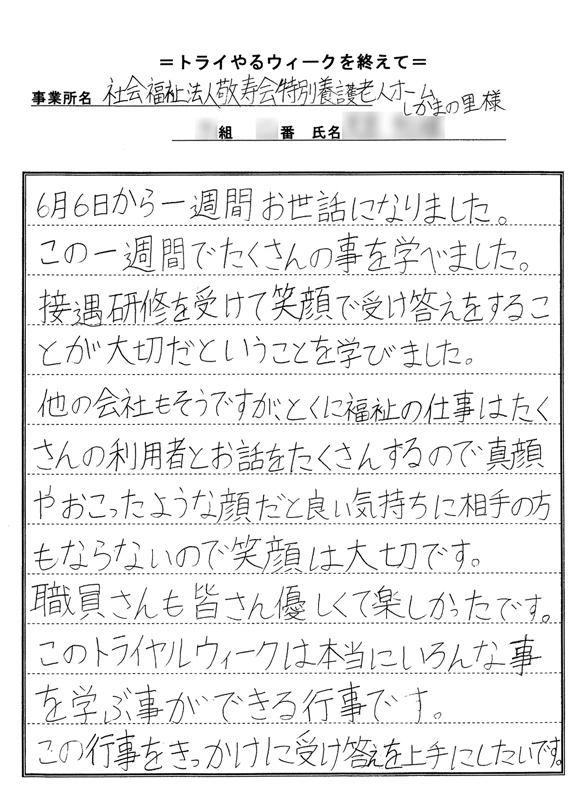 ＝トライやるウィークを終えて＝
事業所名 社会福祉法人敬寿会特別養護老人ホーム
しかまの里様
組 番 氏名
6月6日から一週間お世話になりました。
この一週間でたくさんの事を学べました。
接遇研修を受けて笑顔で受け答えをするこ
とが大切だということを学びました。
他の会社もそうですが、とくに福祉の仕事はたく
さんの利用者とお話をたくさんするので真顔
やおこったような顔だと良い気持ちに相手の方
もならないので笑顔は大切です。
職員さんも皆さん優しくて楽しかったです。
このトライヤルウィークは本当にいろんな事
を学ぶ事ができる行事です。
この行事をきっかけに受け答えを上手にしたいです。